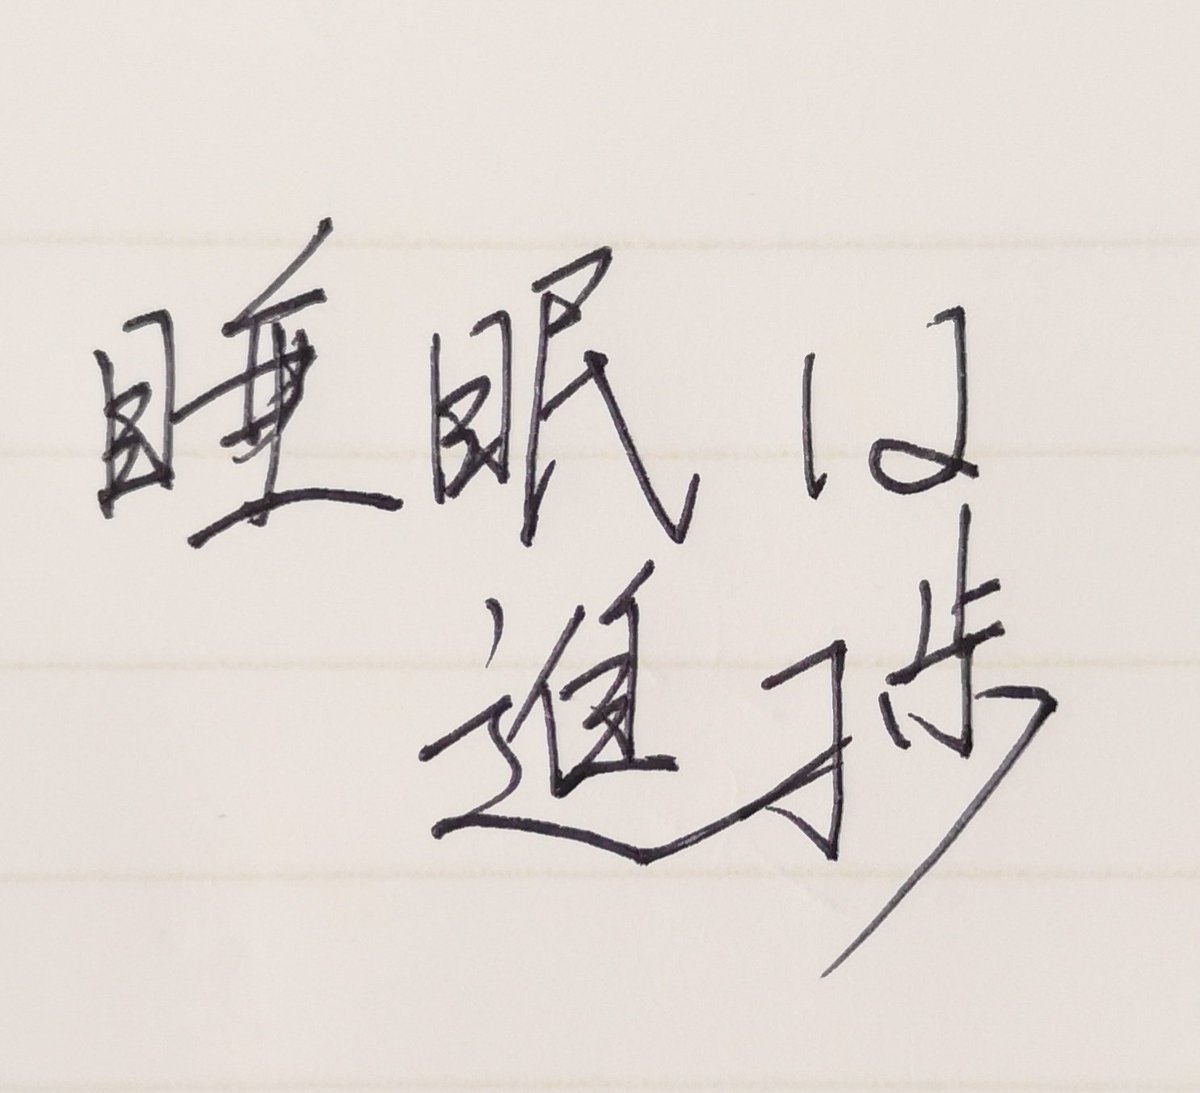 睡眠は
進捗